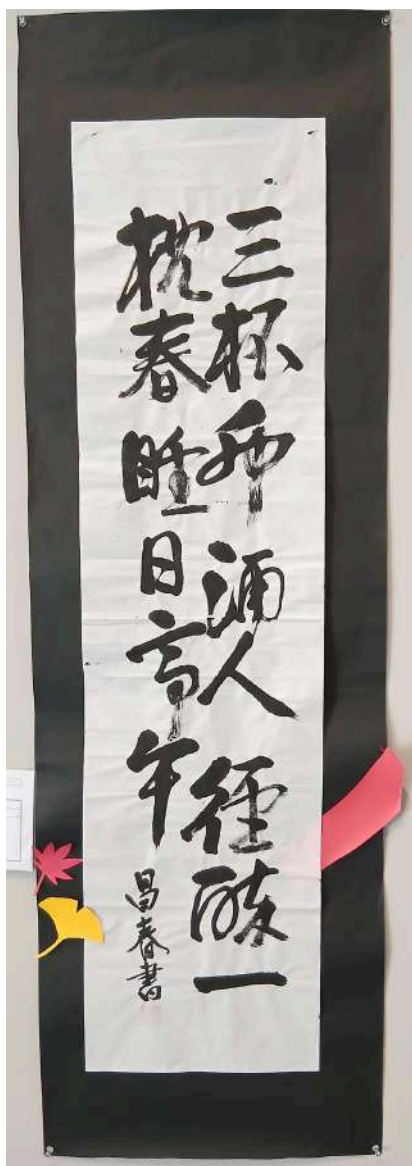 三杯卯酒人徑醉一
枕春睡日高午
昌春書